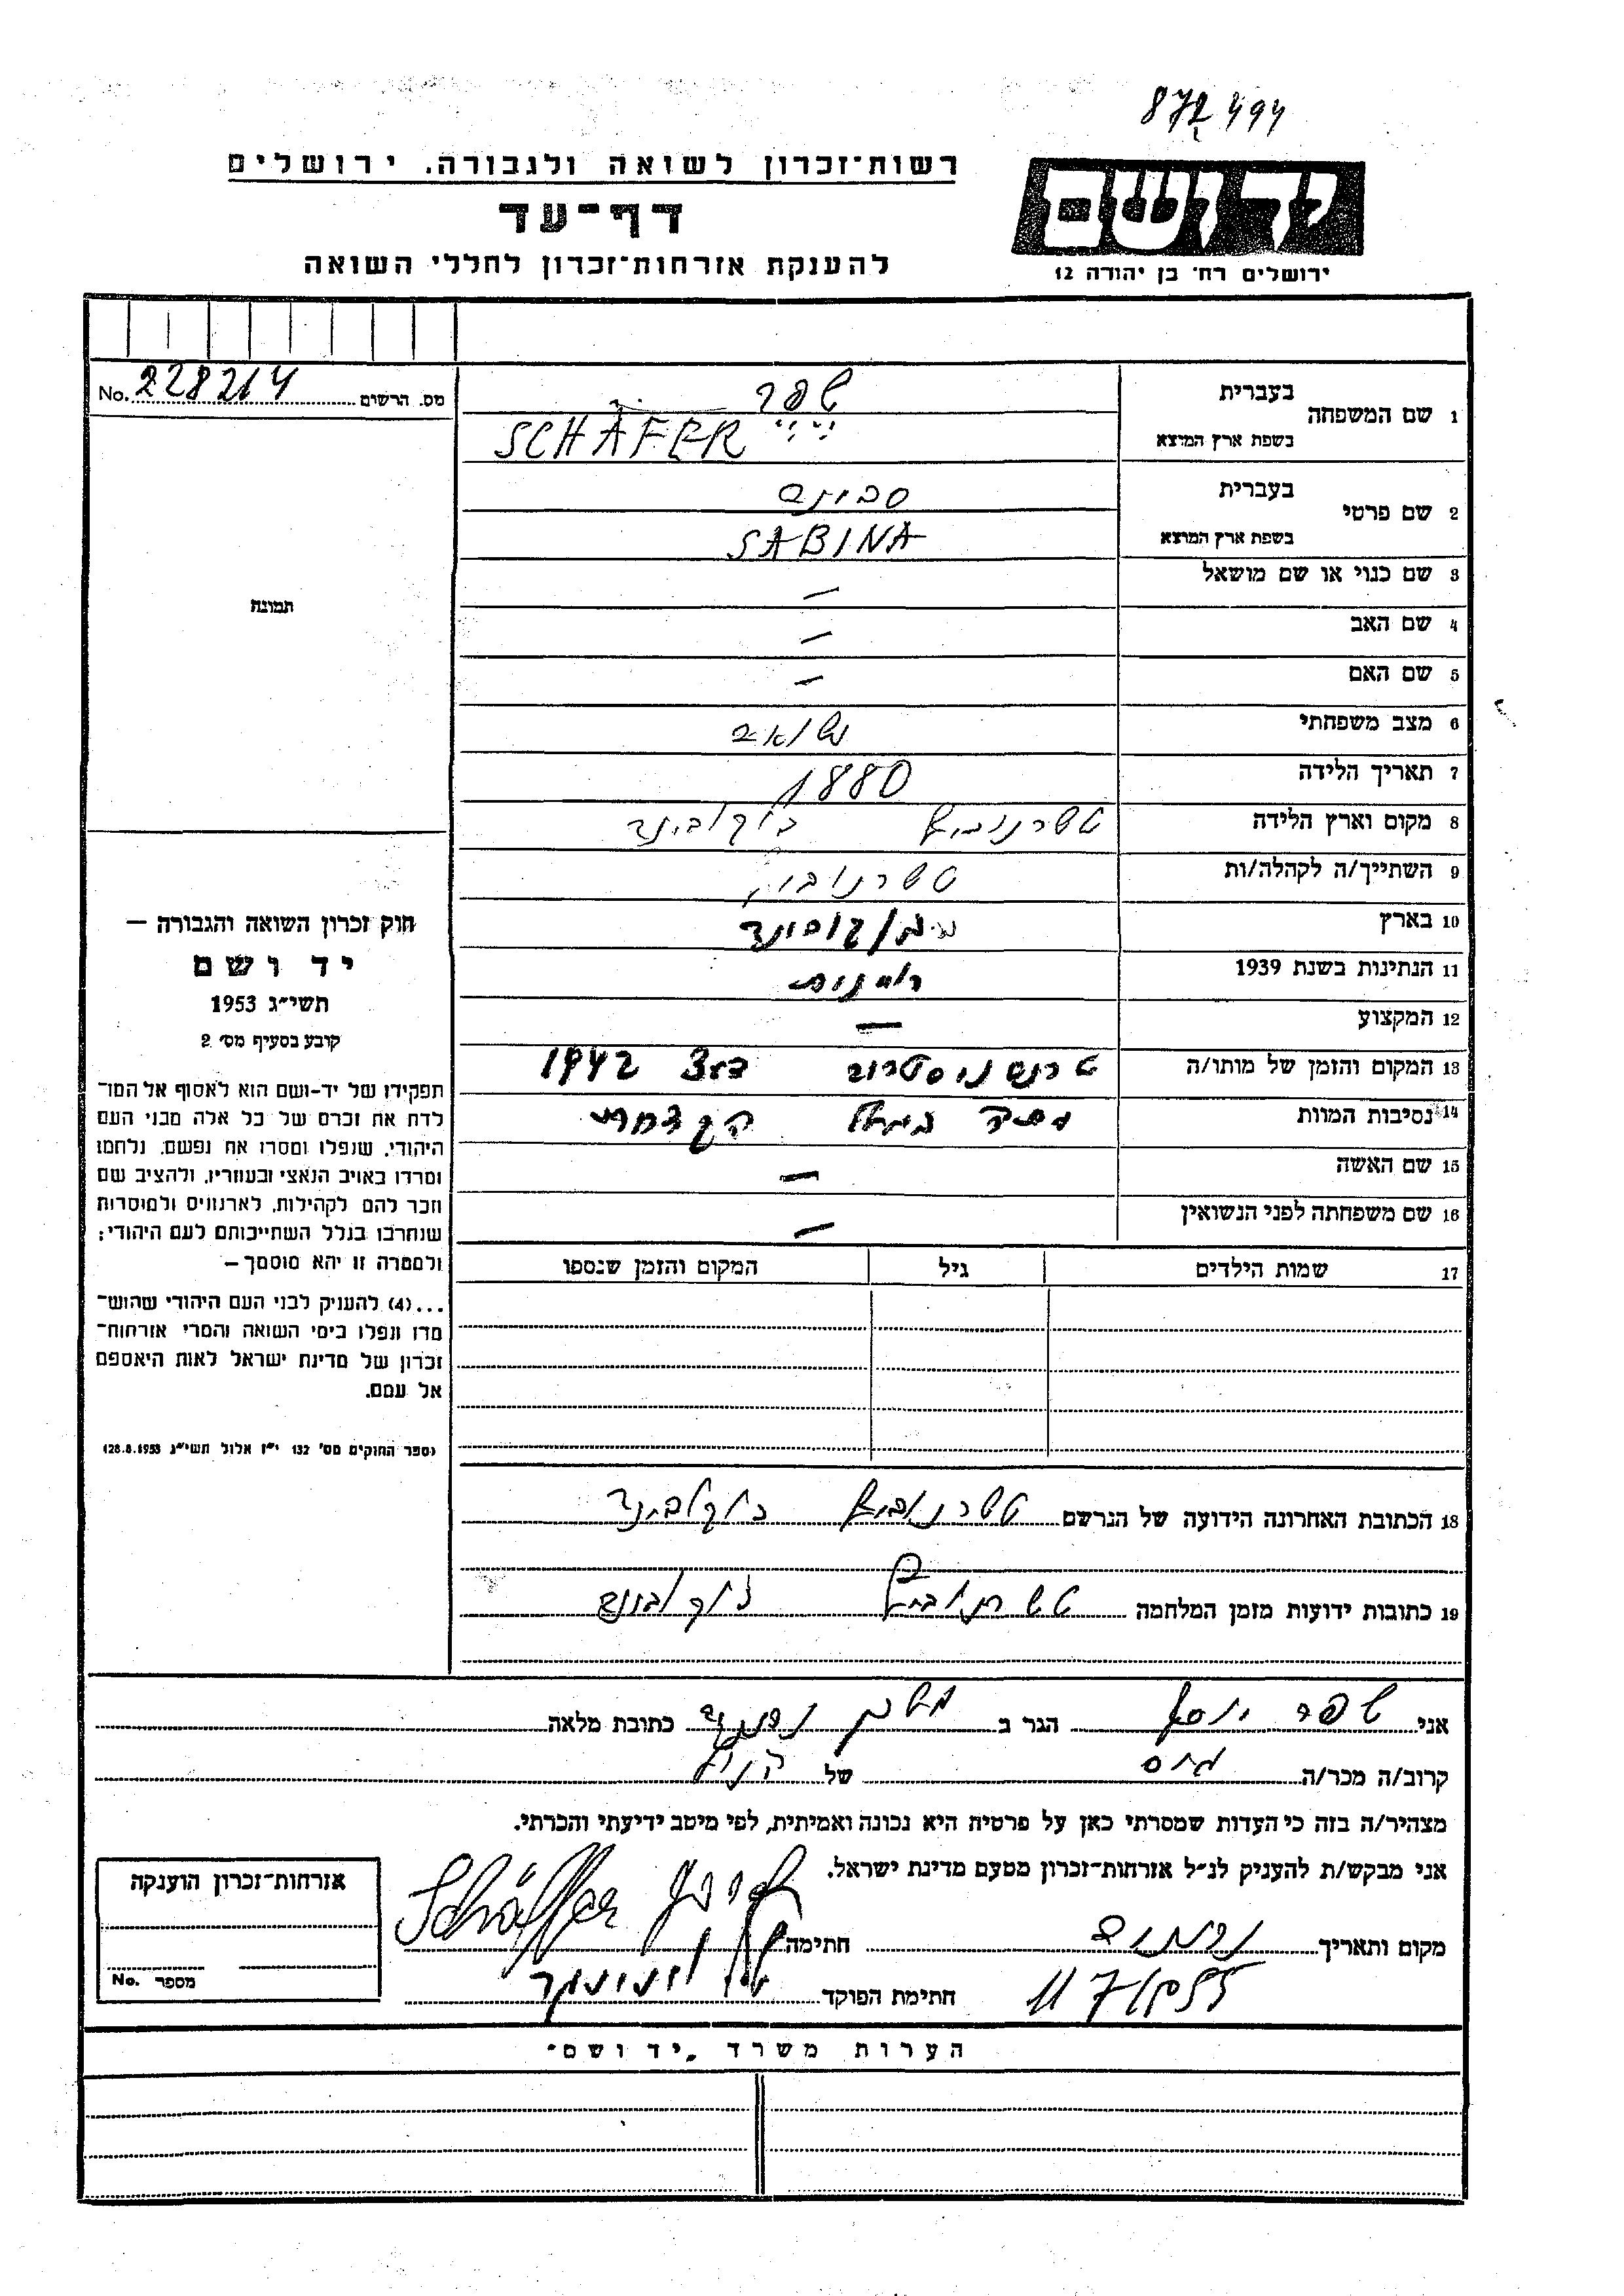 872494
רשות־זכרון לשואה ולגבורה. ירושלים
יד ושם
דף־עד
להענקת אזרחות־זכרון לחללי השואה
ירושלים רח' בן יהודה 12
מס. הרשום 228214 No.
1 שם המשפחה
בעברית שפר
בשפת ארץ המוצא SCHÄFER
2 שם פרטי
בעברית סבינה
בשפת ארץ המוצא SABINA
3 שם כנוי או שם מושאל –
4 שם האב –
5 שם האם –
6 מצב משפחתי נשואה
7 תאריך הלידה 1880
8 מקום וארץ הלידה טשרנוביץ בוקובינה
9 השתייך/ה לקהלה/ות טשרנוביץ
10 בארץ בוקובינה
11 הנתינות בשנת 1939 רומנית
12 המקצוע –
13 המקום והזמן של מותו/ה טרנסניסטריה 1942
14 נסיבות המוות
15 שם האשה –
16 שם משפחתה לפני הנשואין –
17 שמות הילדים גיל המקום והזמן שנספו
18 הכתובת האחרונה הידועה של הנרשם טשרנוביץ בוקובינה
19 כתובות ידועות מזמן המלחמה טשרנוביץ בוקובינה
תמונה
חוק זכרון השואה והגבורה –
יד ושם
תשי״ג 1953
קובע בסעיף מס' 2
תפקידו של יד־ושם הוא לאסוף אל המו־
לדת את זכרם של כל אלה מבני העם
היהודי, שנפלו ומסרו את נפשם, נלחמו
ומרדו באויב הנאצי ובעוזריו, ולהציב שם
וזכר להם לקהילות, לארגונים ולמוסדות
שנחרבו בגלל השתייכותם לעם היהודי;
ולמטרה זו יהא מוסמך –
...(4) להעניק לבני העם היהודי שהוש־
מדו ונפלו בימי השואה והמרי אזרחות־
זכרון של מדינת ישראל לאות היאספם
אל עמם.
(ספר החוקים מס' 132 י״ז אלול תשי״ג 28.8.1953)
אני שפר יוסף הגר ב כתובת מלאה
קרוב/ה מכר/ה גיס של
מצהיר/ה בזה כי העדות שמסרתי כאן על פרטיה היא נכונה ואמיתית, לפי מיטב ידיעתי והכרתי.
אני מבקש/ת להעניק לנ״ל אזרחות־זכרון מטעם מדינת ישראל.
מקום ותאריך נתניה חתימה Schäffer
11/7/955 חתימת הפוקד
אזרחות־זכרון הוענקה
מספר No.
הערות משרד „יד ושם"